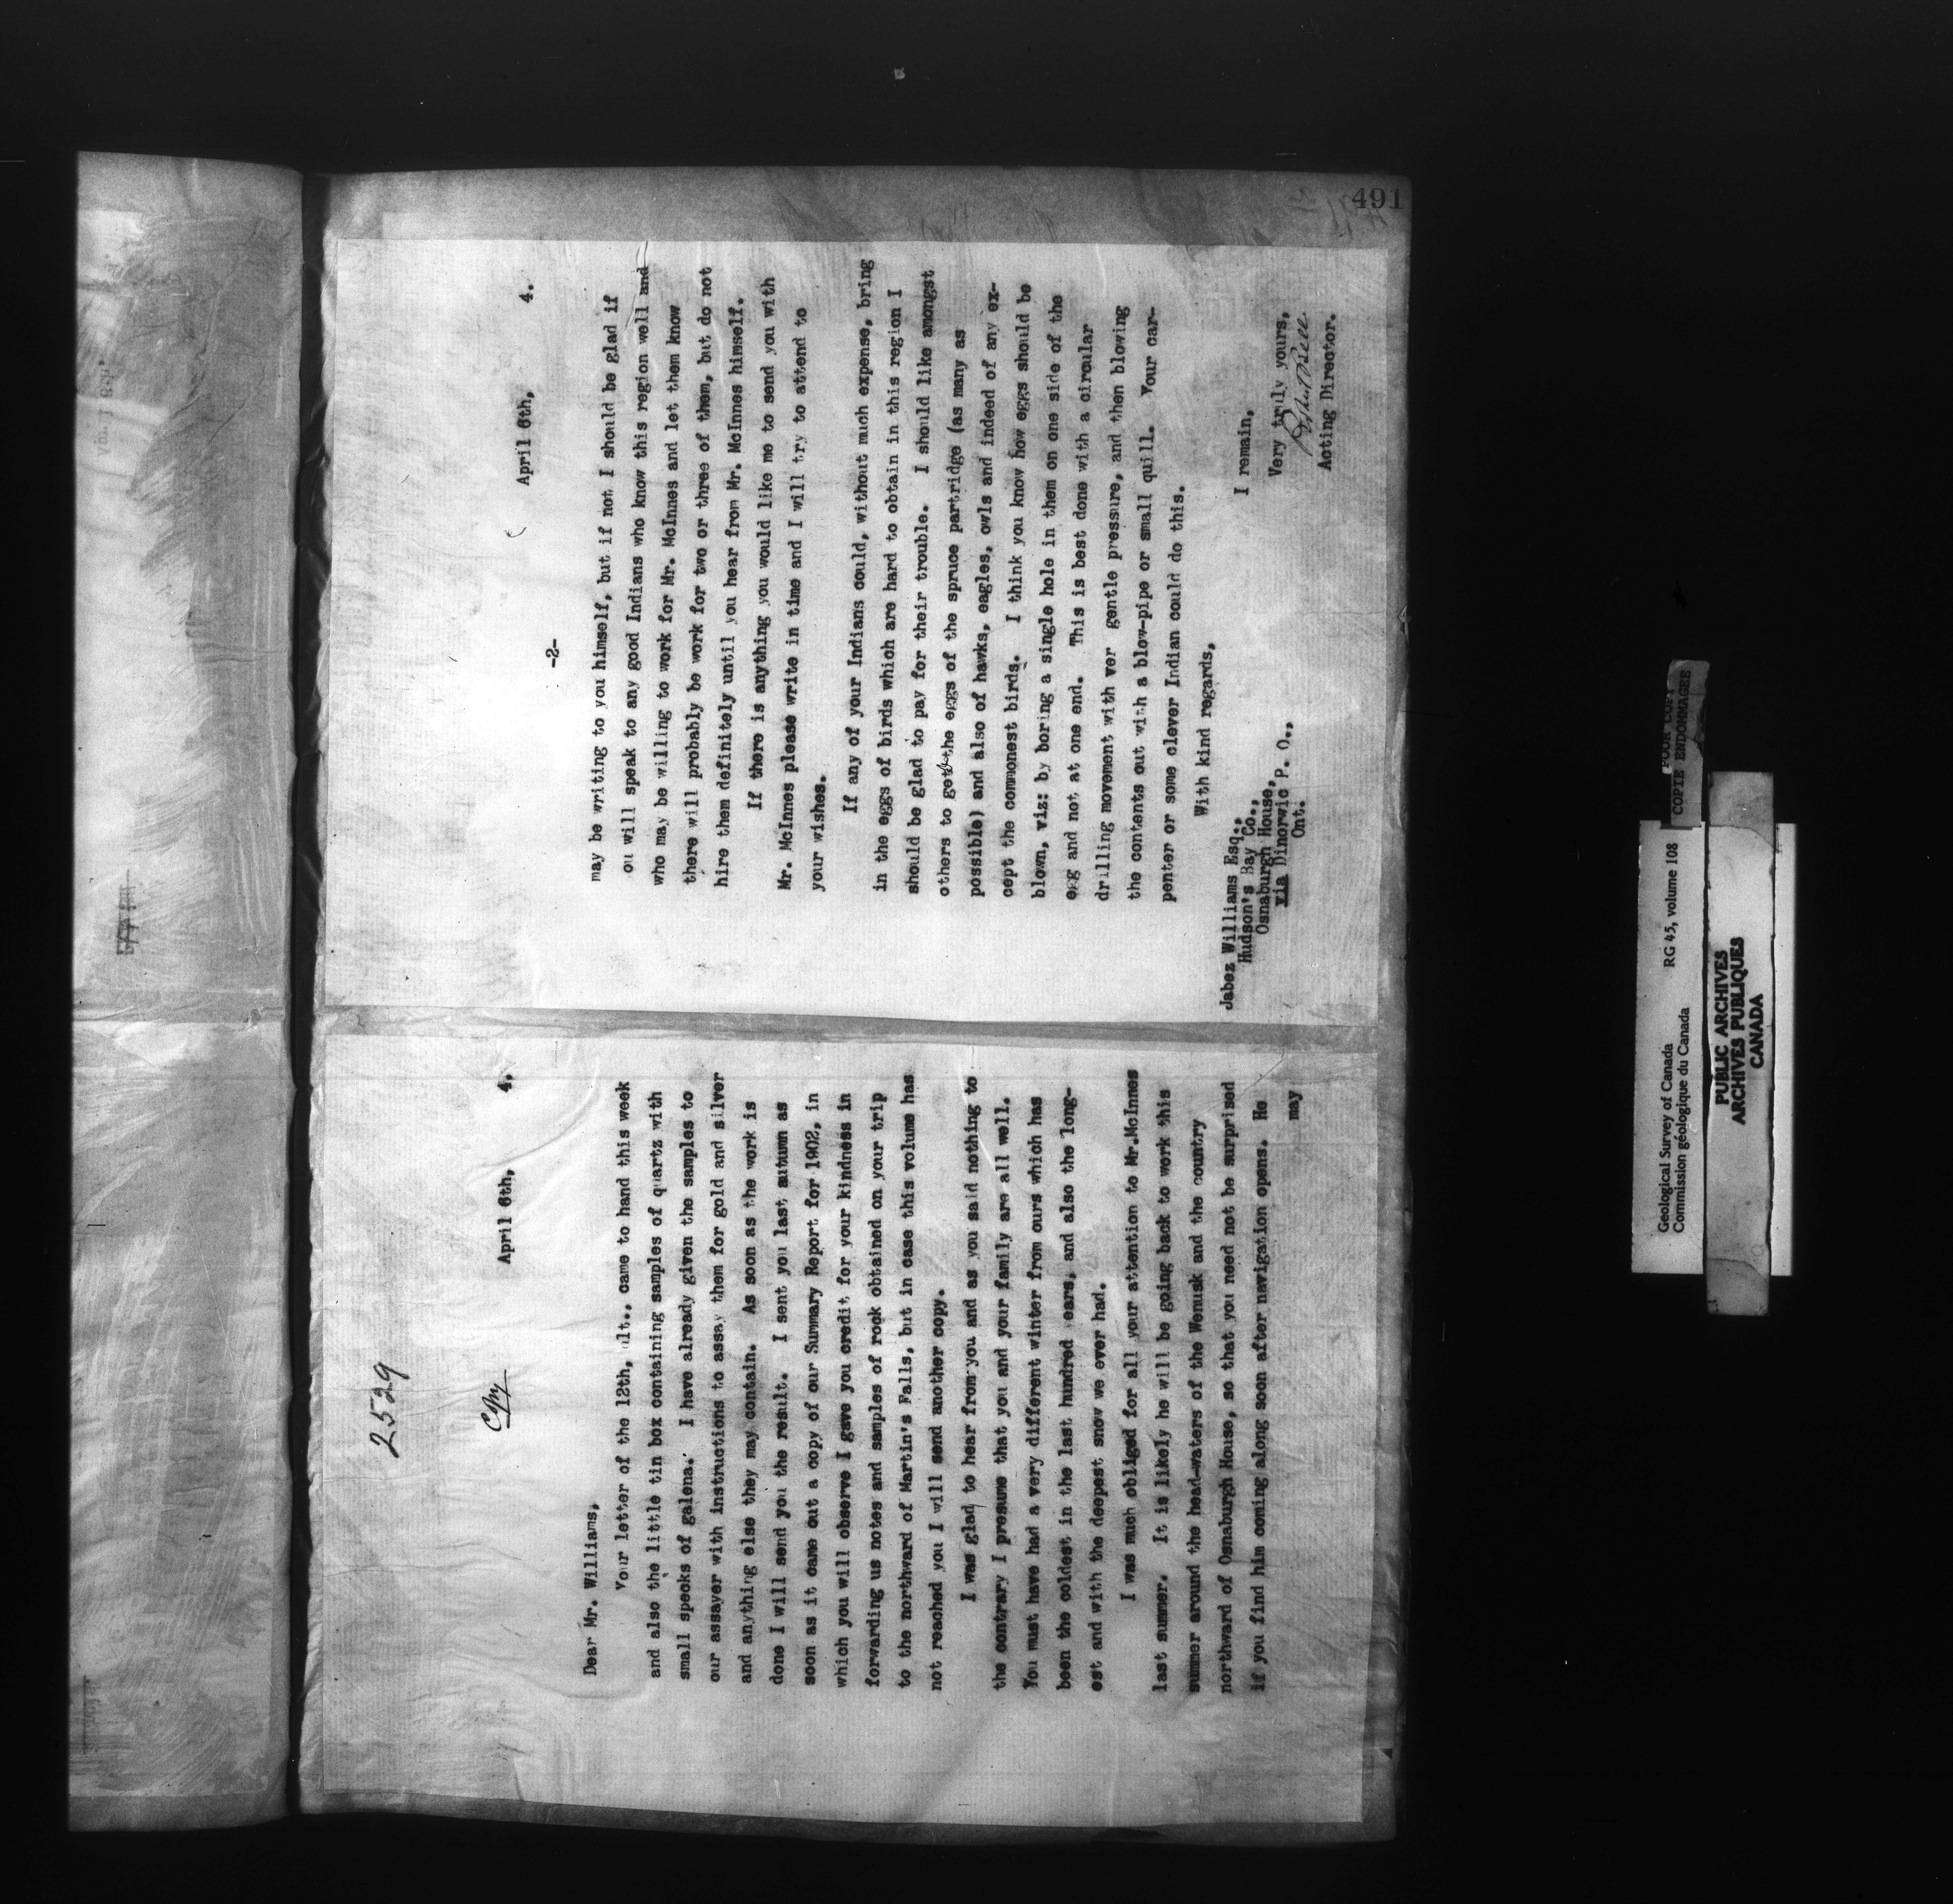 2529
April 6th, 4.
Dear Mr. Williams,
Your letter of the 12th, ult., came to hand this week
and also the little tin box containing samples of quartz with
small specks of galena. I have already given the samples to
our assayer with instructions to assay them for gold and silver
and anything else they may contain. As soon as the work is
done I will send you the result. I sent you last autumn as
soon as it came out a copy of our Summary Report for 1902, in
which you will observe I gave you credit for your kindness in
forwarding us notes and samples of rock obtained on your trip
to the northward of Martin's Falls, but in case this volume has
not reached you I will send another copy.
I was glad to hear from you and as you said nothing to
the contrary I presume that you and your family are all well.
You must have had a very different winter from ours which has
been the coldest in the last hundred years, and also the long-
est and with the deepest snow we ever had.
I was much obliged for all your attention to Mr.McInnes
last summer. It is likely he will be going back to work this
summer around the head-waters of the Wenusk and the country
northward of Osnaburgh House, so that you need not be surprised
if you find him coming along soon after navigation opens. He
may
491
April 6th, 4.
-2-
may be writing to you himself, but if not I should be glad if
ou will speak to any good Indians who know this region well and
who may be willing to work for Mr. McInnes and let them know
there will probably be work for two or three of them, but do not
hire them definitely until you hear from Mr. McInnes himself.
If there is anything you would like me to send you with
Mr. McInnes please write in time and I will try to attend to
your wishes.
If any of your Indians could, without much expense, bring
in the eggs of birds which are hard to obtain in this region I
should be glad to pay for their trouble. I should like amongst
others to get the eggs of the spruce partridge (as many as
possible) and also of hawks, eagles, owls and indeed of any ex-
cept the commonest birds. I think you know how eggs should be
blown, viz: by boring a single hole in them on one side of the
egg and not at one end. This is best done with a circular
drilling movement with ver gentle pressure, and then blowing
the contents out with a blow-pipe or small quill. Your car-
penter or some clever Indian could do this.
With kind regards,
I remain,
Very truly yours,
Robert Bell
Acting Director.
Jabez Williams Esq.,
Hudson's Bay Co.,
Osnaburgh House,
via Dinorwic P. O.,
Ont.
Geological Survey of Canada RG 45, volume 108
Commission géologique du Canada
POOR COPY
COPIE ENDOMMAGEE
PUBLIC ARCHIVES
ARCHIVES PUBLIQUES
CANADA